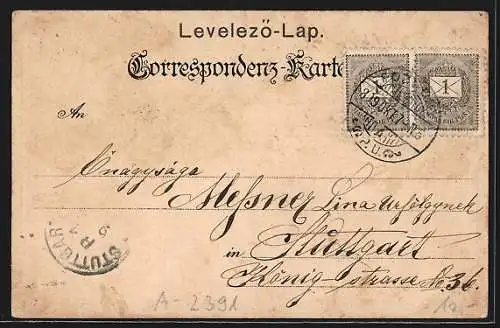 Levelező-Lap.
Correspondenz-Karte
1 1
An
Őnagysága
Messner Lina Urhölgynek
in Stuttgart
König-strasse No 36.
STUTTGAR.
A-2391
10,-